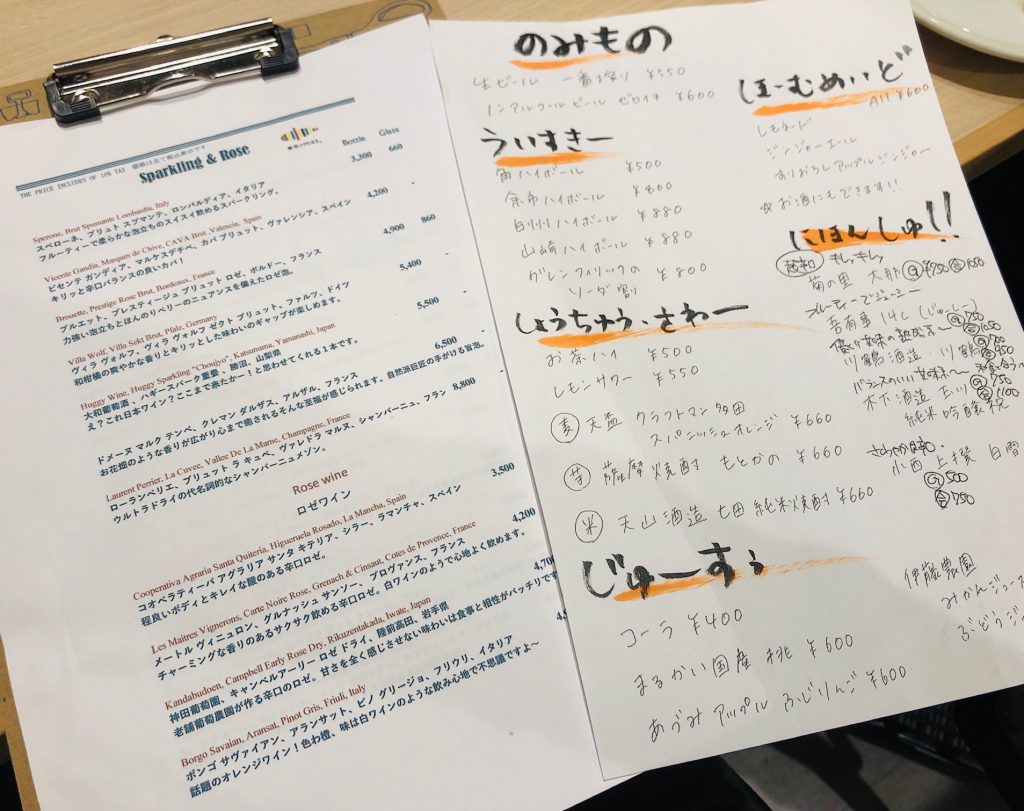 THE PRICE INCLUDES OF 10% TAX 価格は全て税込表示です
Sparkling & Rose
Bottle Glass
3,300 660
Sperone, Brut Spumante Lombardia, Italy
スペローネ、ブリュット スプマンテ、ロンバルディア、イタリア
フルーティーで柔らかな泡立ちのスイスイ飲めるスパークリング。
4,200 -
Vicente Gandia, Marques de Chive, CAVA Brut, Valencia, Spain
ビセンテ ガンディア、マルケスデチベ、カバ ブリュット、ヴァレンシア、スペイン
キリッと辛口バランスの良いカバ！
4,900 860
Brouette, Prestige Rose Brut, Bordeaux, France
ブルエット、プレスティージュ ブリュット ロゼ、ボルドー、フランス
力強い泡立ちとほんのりベリーのニュアンスを備えたロゼ泡。
5,400 -
Villa Wolf, Villa Sekt Brut, Pfalz, Germany
ヴィラ ヴォルフ、ヴィラ ヴォルフ ゼクト ブリュット、ファルツ、ドイツ
和柑橘の爽やかな香りとキリッとした味わいのギャップが楽しめます。
5,500 -
Huggy Wine, Huggy Sparkling "Choujyo", Katsunuma, Yamanashi, Japan
大和葡萄酒 、ハギースパーク重要 、勝沼、山梨県
え？これ日本ワイン？ここまで来たかー！と思わせてくれる１本です。
6,500 -
ドメーヌ マルク テンペ、クレマン ダルザス、アルザル、フランス
お花畑のような香りが広がり心まで癒されるそんな至福が感じられます。自然派巨匠の手がける旨泡。
8,800 -
Laurent Perrier, La Cuvee, Vallee De La Marne, Champagne, France
ローランペリエ、ブリュット ラ キュベ、ヴァレドラ マルヌ、シャンパーニュ、フラン
ウルトラドライの代名詞的なシャンパーニュメゾン。
Rose wine
ロゼワイン
3,500
Cooperativa Agraria Santa Quiteria, Higueruela Rosado, La Mancha, Spain
コオペラティーバ アグラリア サンタ キテリア、シラー、ラマンチャ、スペイン
程良いボディとキレイな酸のある辛口ロゼ。
4,200
Les Maitres Vignerons, Carte Noire Rose, Grenach & Cinsaut, Cotes de Provence, France
メートル ヴィニュロン、グルナッシュ サンソー、プロヴァンス、フランス
チャーミングな香りのあるサクサク飲める辛口ロゼ。白ワインのようで心地よく飲めます。
4,70
Kandabudoen, Campbell Early Rose Dry, Rikuzentakada, Iwate, Japan
神田葡萄園、キャンベルアーリー ロゼ ドライ、陸前高田、岩手県
老舗葡萄農園が作る辛口のロゼ。甘さを全く感じさせない味わいは食事と相性がバッチリです
Borgo Savaian, Aransat, Pinot Gris, Friuli, Italy
ボンゴ サヴァイアン、アランサット、ピノ グリージョ、フリウリ、イタリア
話題のオレンジワイン！色わ橙、味は白ワインのような飲み心地で不思議ですよ～
のみもの
生ビール 一番搾り ¥550
ノンアルコールビール ゼロイチ ¥600
ういすきー
角ハイボール ¥500
余市ハイボール ¥800
白州ハイボール ¥880
山崎ハイボール ¥880
グレンフィリックの
ソーダ割 ¥800
しょうちゅう、さわー
お茶ハイ ¥500
レモンサワー ¥550
麦 天盃 クラフトマン多田
スパニッシュオレンジ ¥660
芋 薩摩焼酎 もとかの ¥660
米 天山酒造 七田 純米焼酎 ¥660
じゅーすぅ
コーラ ¥400
まるかい国産桃 ¥600
あづみアップル ふじりんご ¥600
ほーむめいど
All ¥600
レモネード
ジンジャーエール
すりおろしアップルジンジャー
☆お酒にもできます!!
にほんしゅ!!
キレッキレッ
菊の里 大那
フルーティーでジューシー
吾有事
川鶴酒造 川鶴
木下酒造 玉川
純米吟醸 祝
小西 上撰 白雪
500
750
伊藤農園
みかんジュー
ぶどうジ